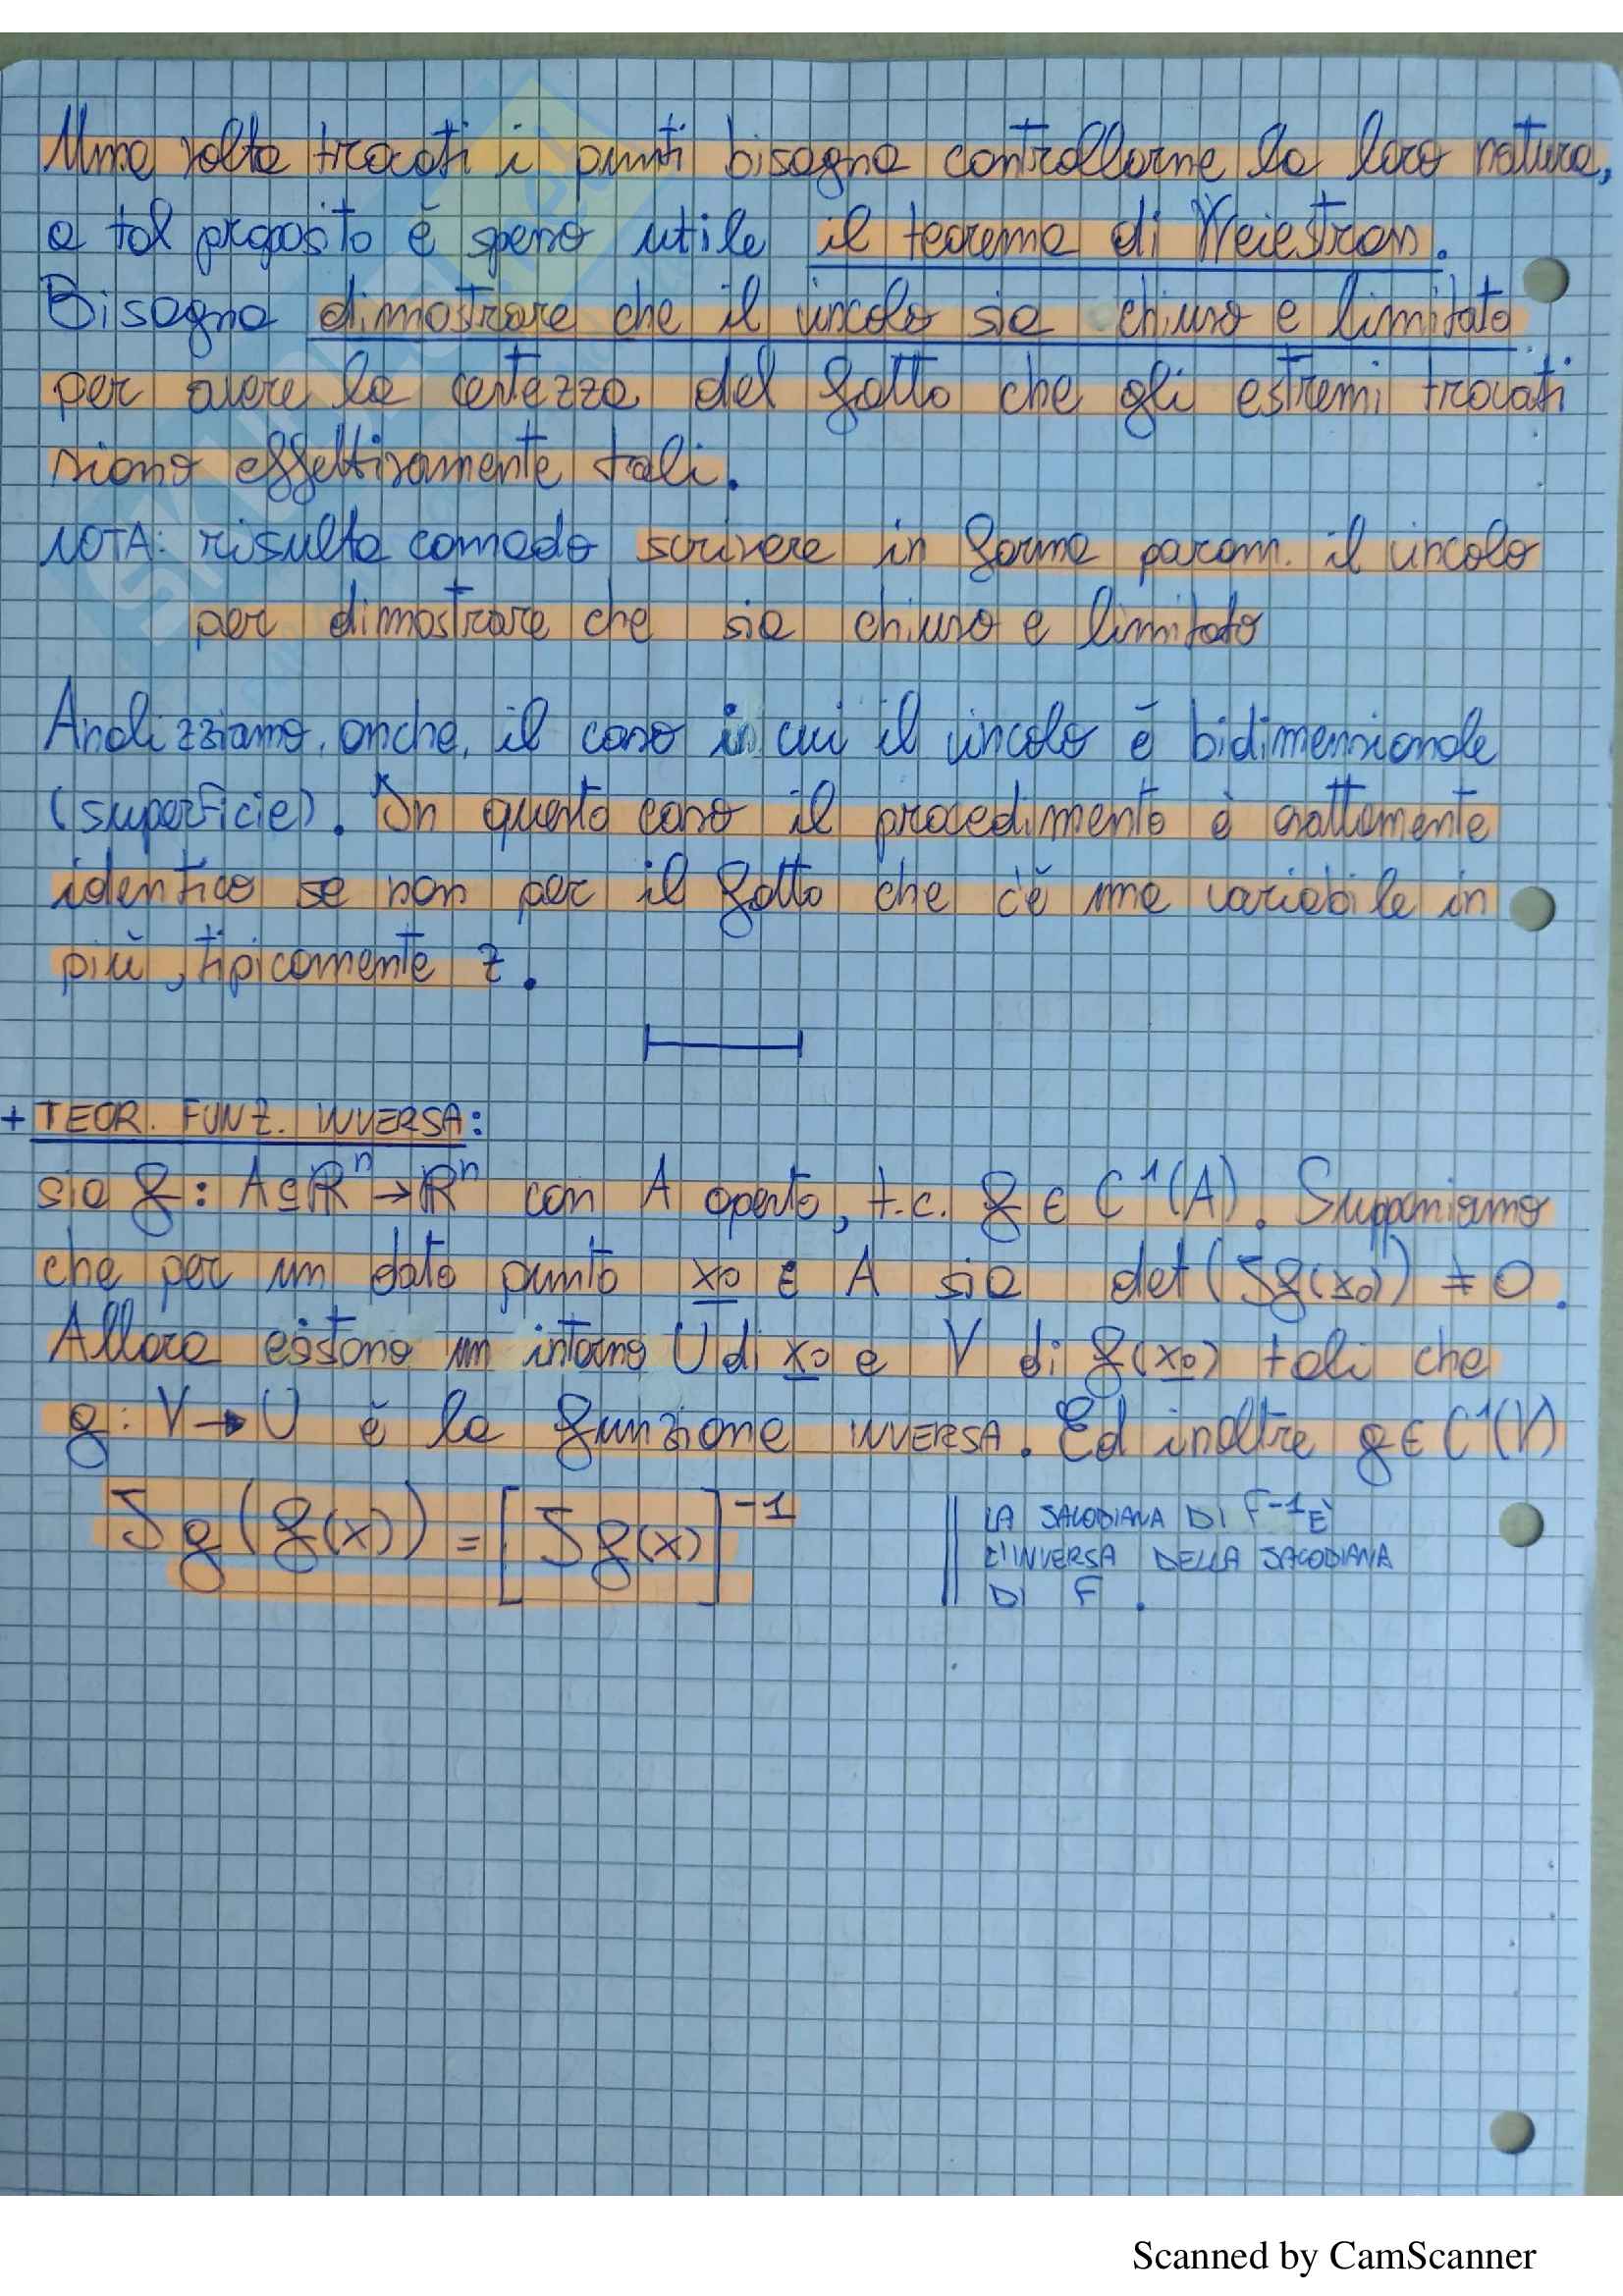 Una volta trovati i punti bisogna controllarne la loro natura,
a tal proposito è spesso utile il teorema di Weiestrass.
Bisogna dimostrare che il vincolo sia chiuso e limitato
per avere la certezza del fatto che gli estremi trovati
siano effettivamente tali.
NOTA: risulta comodo scrivere in forma param. il vincolo
per dimostrare che sia chiuso e limitato
Analizziamo, anche, il caso in cui il vincolo è bidimensionale
(superficie). In questo caso il procedimento è esattamente
identico se non per il fatto che c'è una variabile in
più, tipicamente z.
+ TEOR. FUNZ. INVERSA:
sia f: A⊆ℝⁿ→ℝⁿ con A aperto, t.c. f ∈ C¹(A). Supponiamo
che per un dato punto x₀ ∈ A sia det(Jf(x₀)) ≠ 0.
Allora esistono un intorno U di x₀ e V di f(x₀) tali che
g: V→U è la funzione INVERSA. Ed inoltre g∈C¹(V)
Jg(f(x)) = [Jf(x)]⁻¹
LA JACOBIANA DI F⁻¹ È
L'INVERSA DELLA JACOBIANA
DI F.
SKUOLA.net
Scanned by CamScanner